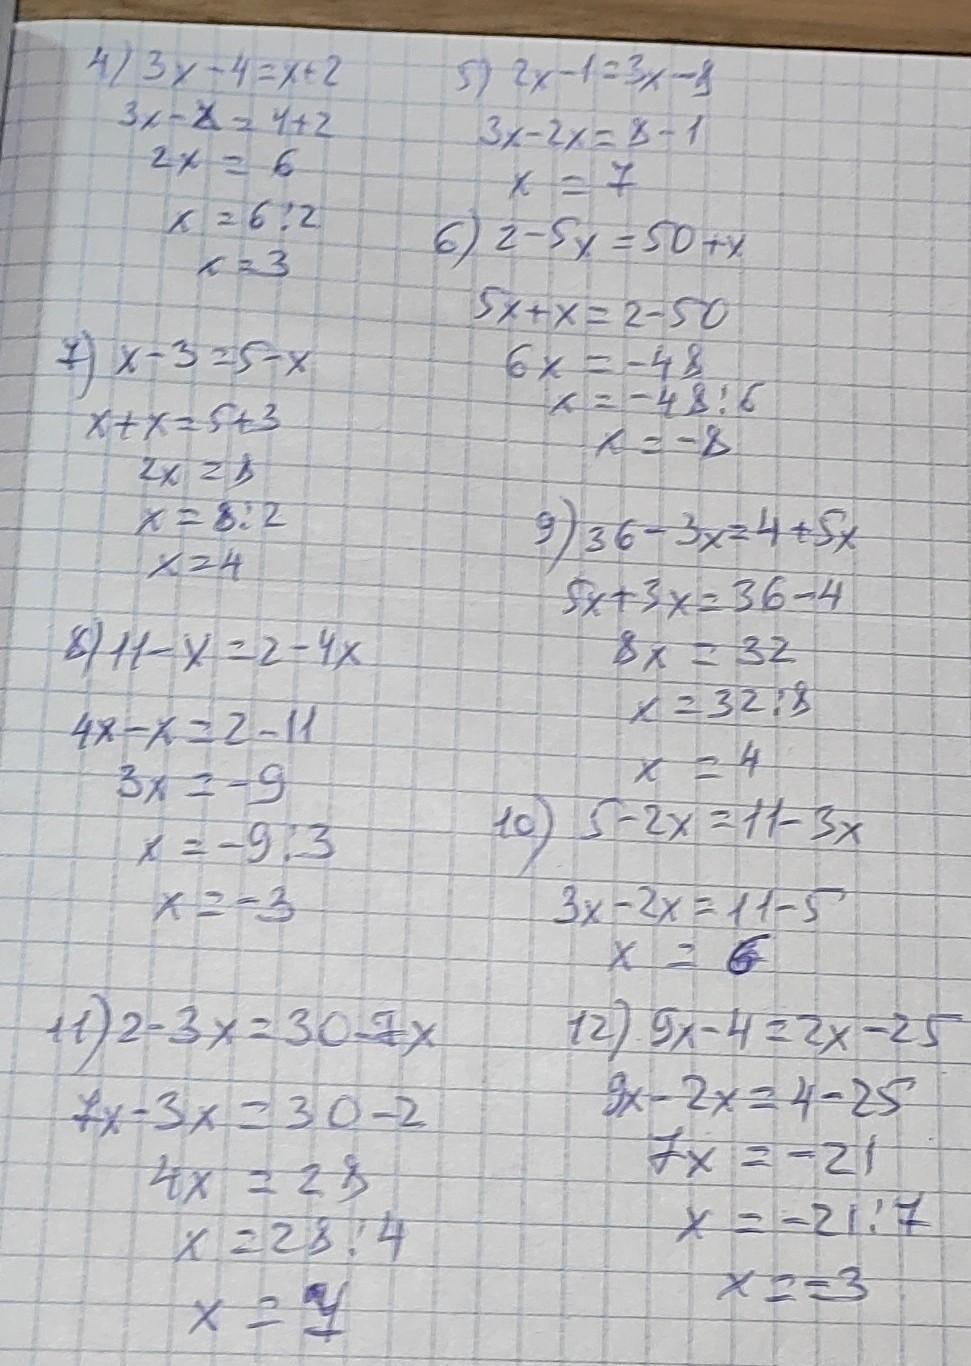 4) 3x-4=x+2
3x-x=4+2
2x = 6
x = 6:2
x = 3
5) 2x-1=3x-8
3x-2x=8-1
x = 7
6) 2-5x=50+x
5x+x=2-50
6x = -48
x = -48:6
x = -8
7) x-3=5-x
x+x=5+3
2x = 8
x = 8:2
x = 4
8) 11-x=2-4x
4x-x=2-11
3x = -9
x = -9:3
x = -3
9) 36-3x=4+5x
5x+3x=36-4
8x = 32
x = 32:8
x = 4
10) 5-2x=11-3x
3x-2x=11-5
x = 6
11) 2-3x=30-7x
7x-3x=30-2
4x = 28
x = 28:4
x = 7
12) 9x-4=2x-25
9x-2x=4-25
7x = -21
x = -21:7
x = -3